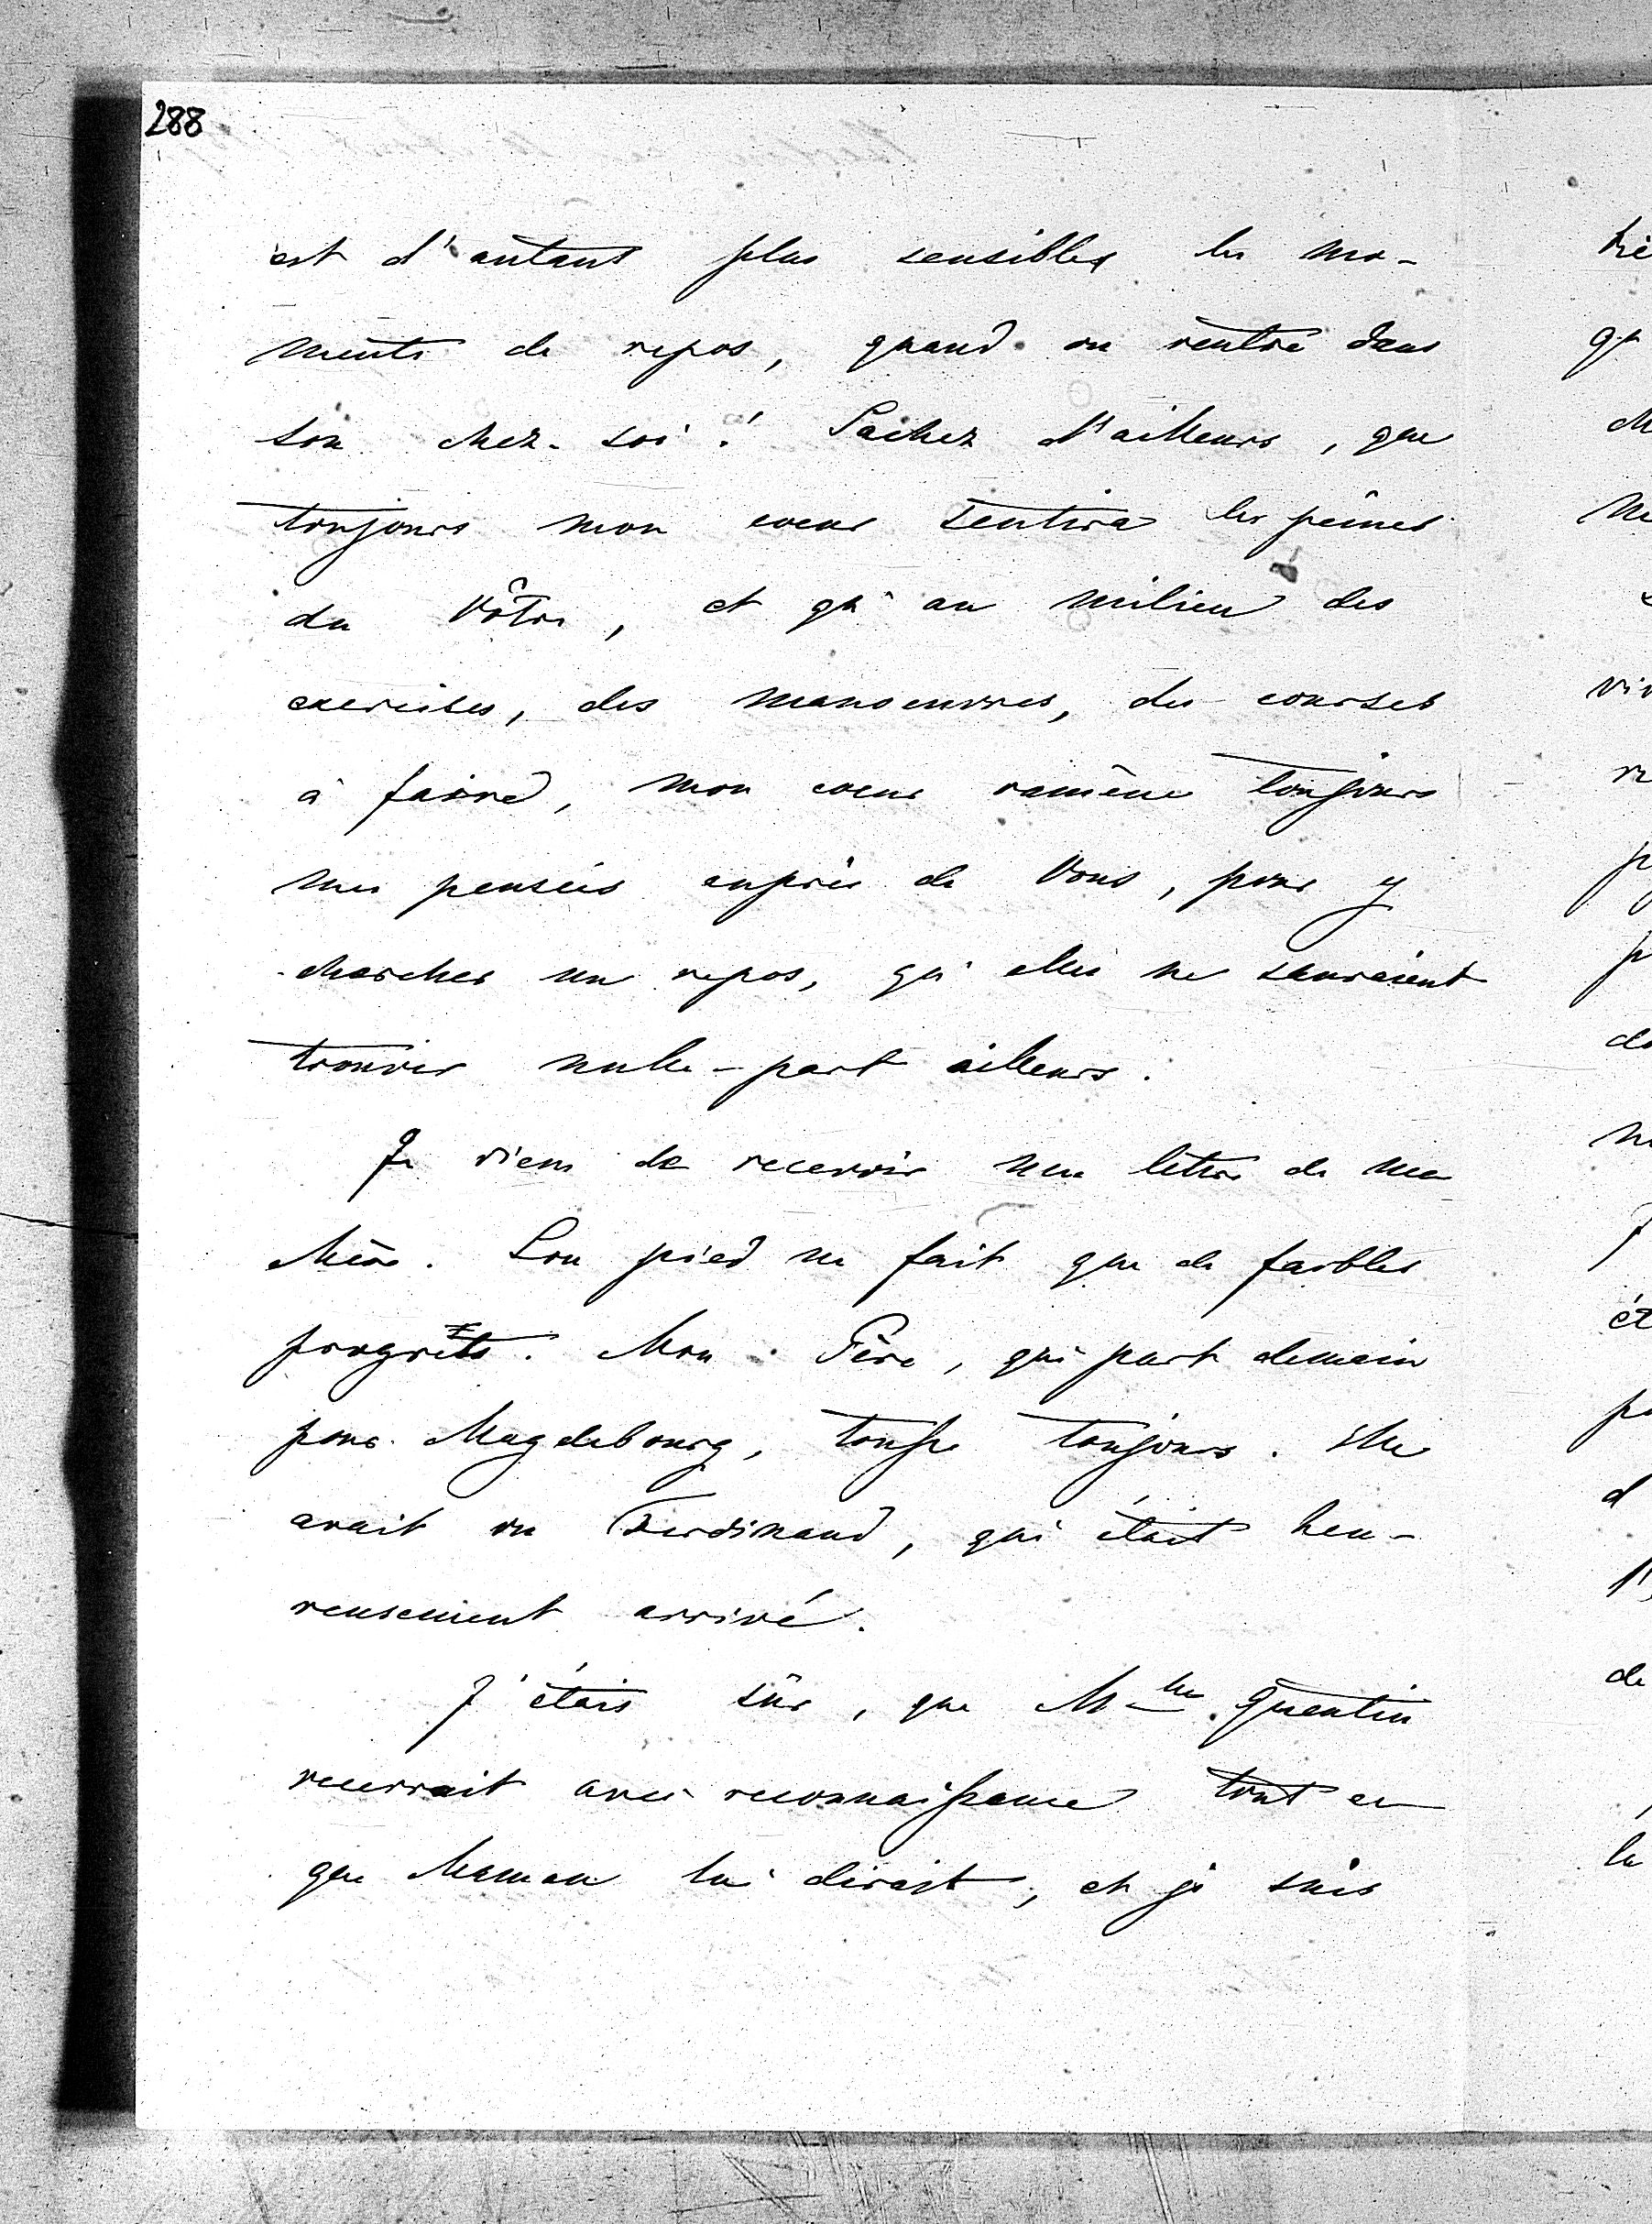 288
est d'autant plus sensibles les mo-
ments de repos, quand on rentre dans
son chez-soi! Sachez d'ailleurs, que
toujours mon coeur sentira les peines
du Vôtre, et qu'au milieu des
exercises, des manoeuvres, des courses
à faire, mon coeur ramène toujours
mes pensées auprès de Vous, pour y
chercher un repos, qu'elles ne sauraient
trouver nulle-part ailleurs.
Je viens de recevoir une lettre de ma
Mère. Son pied ne fait que de faibles
progrèts. Mon Père, qui part demain
pour Magdebourg, tousse toujours. Elle
avait vu Ferdinand, qui était heu-
reusement arrivé.
J'étais sûr, que Mlle Quentin
recevrait avec reconnaissance tout ce
que Maman lui dirait, et je suis